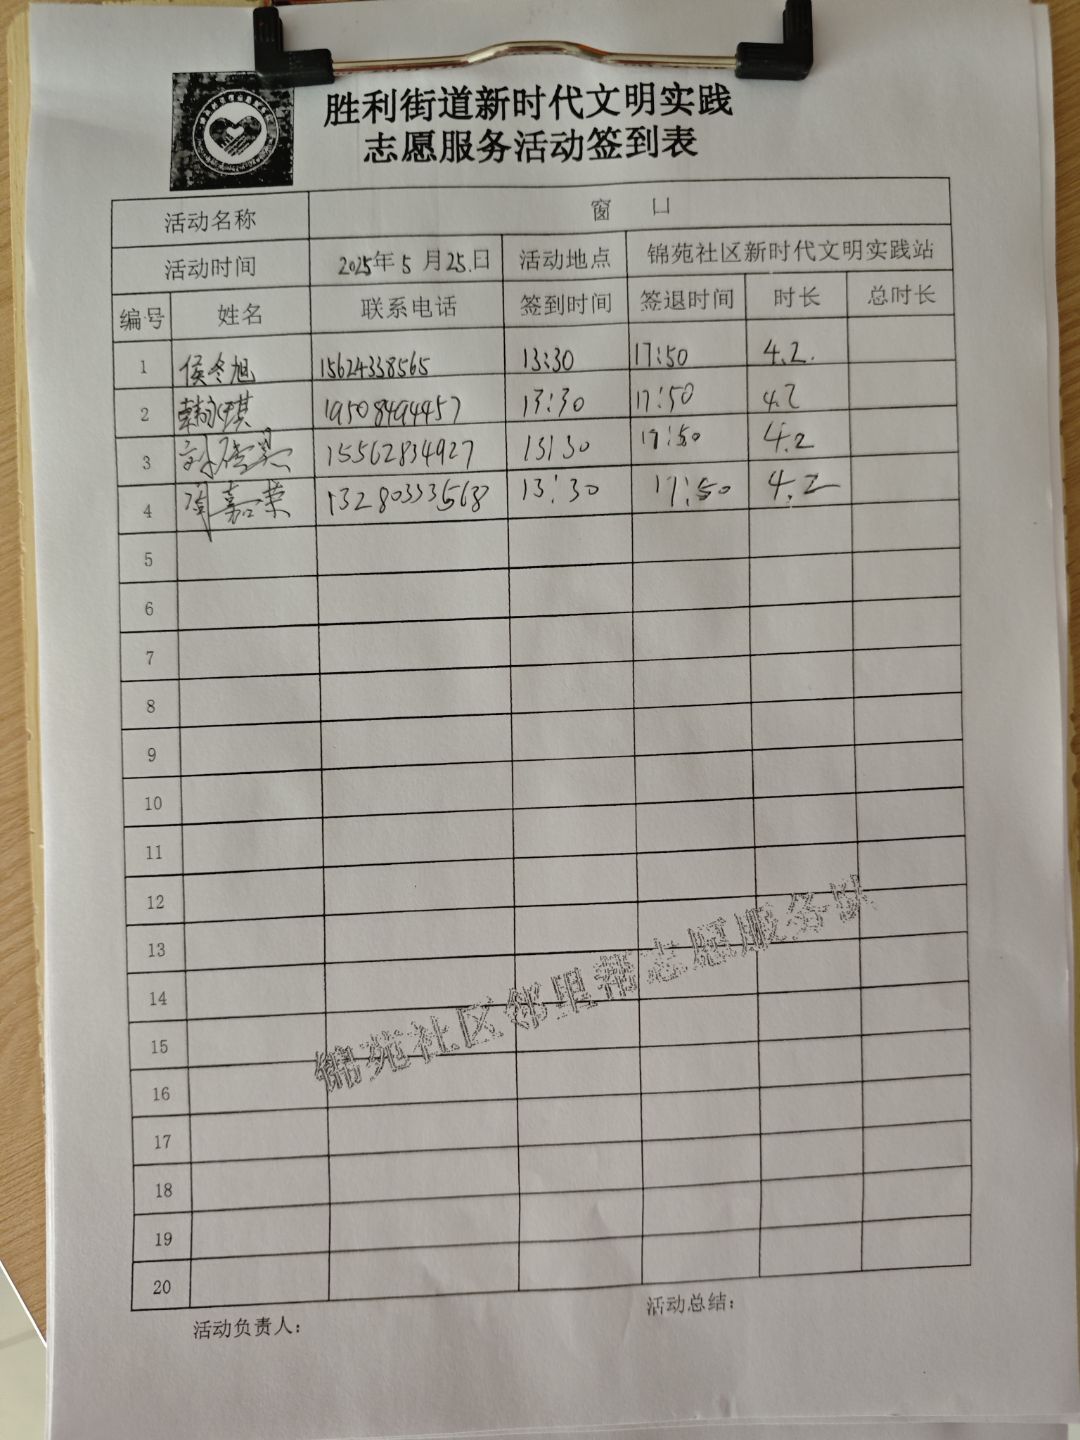 胜利街道新时代文明实践
志愿服务活动签到表
活动名称 窗 口
活动时间 2025年5月25日 活动地点 锦苑社区新时代文明实践站
编号 姓名 联系电话 签到时间 签退时间 时长 总时长
1 侯冬旭 15624338565 13:30 17:50 4.2
2 韩永琪 19508494457 13:30 17:50 4.2
3 15562834927 13:30 17:50 4.2
4 嘉荣 13280333568 13:30 17:50 4.2
5
6
7
8
9
10
11
12
13
14
15
16
17
18
19
20
锦苑社区邻里帮志愿服务队
活动负责人: 活动总结: